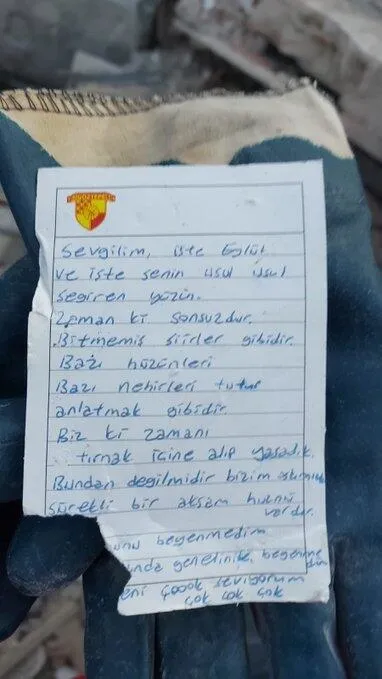 GÖZTEPE
Sevgilim, işte Eylül
ve işte senin usul usul
seğiren yüzün.
Zaman ki sonsuzdur.
Bitmemiş şiirler gibidir.
Bazı hüzünleri
Bazı nehirleri tutup
anlatmak gibidir.
Biz ki zamanı
tırnak içine alıp yaşadık.
Bundan değilmidir bizim
sürekli bir akşam hüznü
vardır.
unu beğenmedim
beğenme
dim
eni çoook seviyorum
çok çok çok